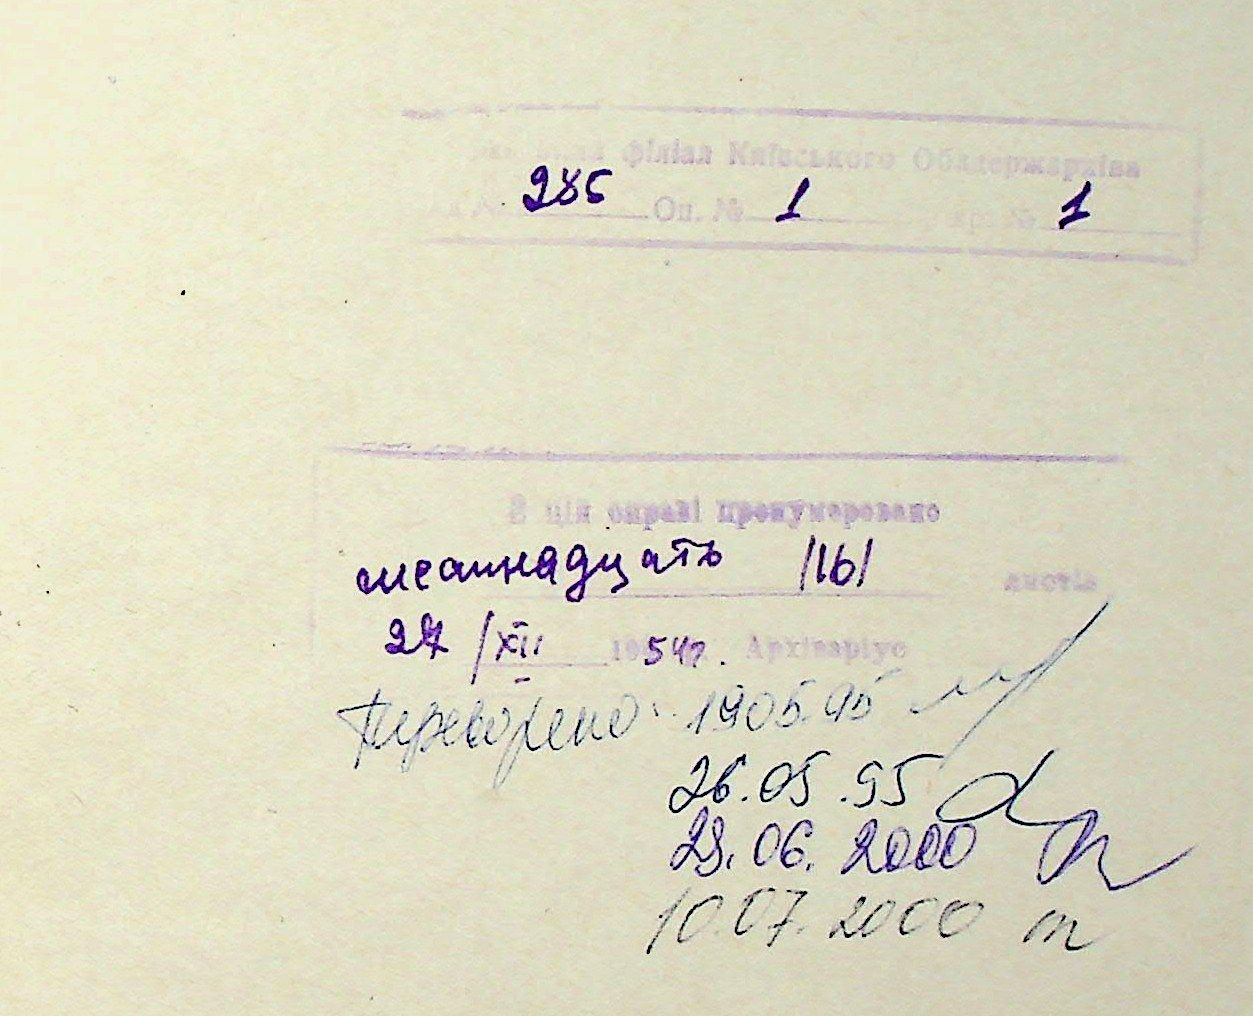 філіал Київського Облдержархіва
285 Оп. № 1 № 1
В цій справі пронумеровано
шестнадцать /16/ листів
27/XII 1954 г. Архіваріус
Перевірено: 19.05.95
26.05.95
29.06.2000
10.07.2000